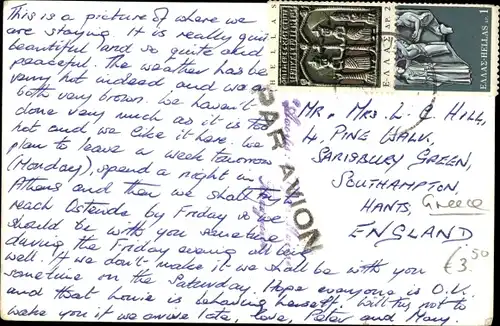 This is a picture of where we
are staying. It is really quite
beautiful and so quite and
peaceful. The weather has be
very hot indeed, and we are
both very brown. We haven't
done very much as it is too
hot and we like it here. We
plan to leave a week tomorrow
(Monday), spend a night in
Athens and then we shall try
reach Ostende by Friday so we
should be with you sometime
during the Friday evening all being
well. If we don't make it we shall be with you
sometime on the Saturday. Hope everyone is O.K.
and that Louise is behaving herself. Will try not to
wake you if we arrive late, love, Peter and Mary.
ΕΛΛΑΣ-HELLAS
PAR AVION
MR. MRS. L. C. HILL,
4, PINE WALK,
SARISBURY GREEN,
SOUTHAMPTON,
HANTS,
ENGLAND
Greece
£3.50